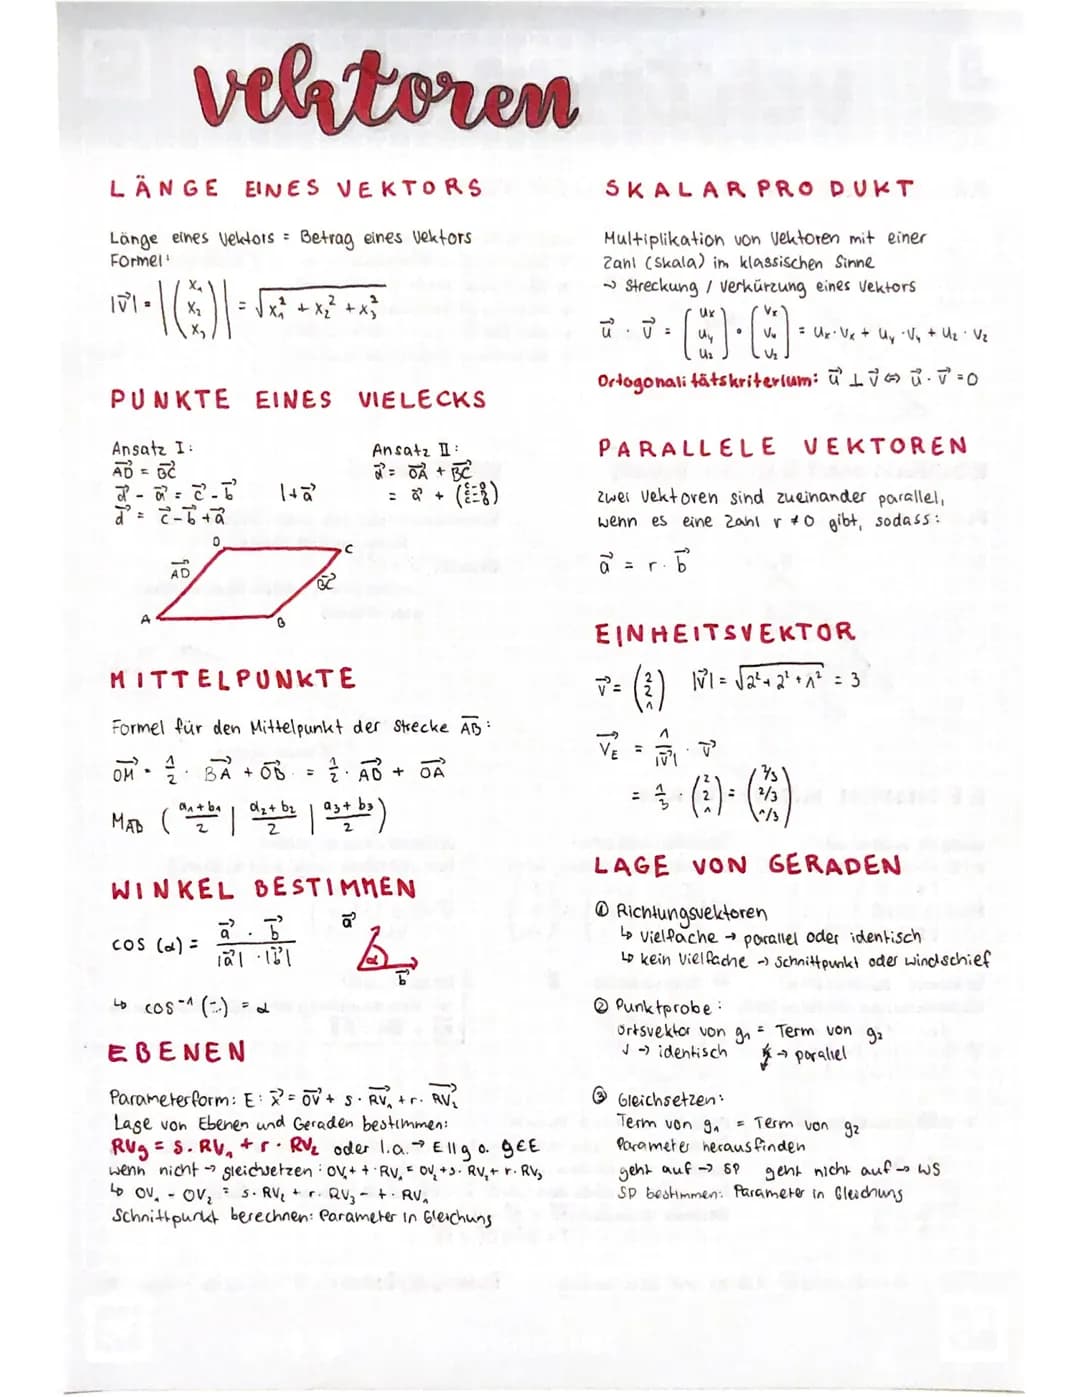 vektoren
LÄNGE EINES VEKTORS
Länge eines Vektors = Betrag eines Vektors
Formel:
|v⃗| = |(x₁ x₂ x₃)| = √x₁² + x₂² + x₃²
PUNKTE EINES VIELECKS
Ansatz I:
AD⃗ = BC⃗
d⃗ - a⃗ = c⃗ - b⃗ |+a⃗
d⃗ = c⃗ - b⃗ + a⃗
Ansatz II:
d⃗ = OA⃗ + BC⃗
= a⃗ +
D
C
AD⃗
BC⃗
A
B
MITTELPUNKTE
Formel für den Mittelpunkt der Strecke AB:
OM⃗ = 1/2 · BA⃗ + OB⃗ = 1/2 · AB⃗ + OA⃗
M_AB (a₁+b₁/2 | a₂+b₂/2 | a₃+b₃/2)
WINKEL BESTIMMEN
cos (α) = a⃗ · b⃗ / |a⃗| · |b⃗|
a⃗
α
b⃗
↳ cos⁻¹ (∴) = α
EBENEN
Parameterform: E: x⃗ = OV⃗ + s · RV₁⃗ + r · RV₂⃗
Lage von Ebenen und Geraden bestimmen:
RVg = s · RV₁ + r · RV₂ oder l.a. → E || g o. g∈E
wenn nicht → gleichsetzen: OV₁ + t · RV₁ = OV₂ + s · RV₂ + r · RV₃
↳ OV₁ - OV₂ = s · RV₂ + r · RV₃ - t · RV₁
Schnittpunkt berechnen: Parameter in Gleichung
SKALARPRODUKT
Multiplikation von Vektoren mit einer
Zahl (Skala) im klassischen Sinne
→ Streckung / Verkürzung eines Vektors
u⃗ · v⃗ = [ux uy uz] · [vx vy vz] = ux · vx + uy · vy + uz · vz
Ortogonalitätskriterium: u⃗ ⊥ v⃗ ⇔ u⃗ · v⃗ = 0
PARALLELE VEKTOREN
Zwei Vektoren sind zueinander parallel,
wenn es eine Zahl r ≠ 0 gibt, sodass:
a⃗ = r · b⃗
EINHEITSVEKTOR
v⃗ = (2 2 1) |v⃗| = √2² + 2² + 1² = 3
V_E⃗ = 1/|v⃗| · v⃗
= 1/3 · (2 2 1) = (2/3 2/3 1/3)
LAGE VON GERADEN
① Richtungsvektoren
↳ Vielfache → parallel oder identisch
↳ kein Vielfache → Schnittpunkt oder windschief
② Punktprobe:
Ortsvektor von g₁ = Term von g₂
✓ → identisch ↯ → parallel
③ Gleichsetzen:
Term von g₁ = Term von g₂
Parameter herausfinden
geht auf → SP geht nicht auf → WS
SP bestimmen: Parameter in Gleichung